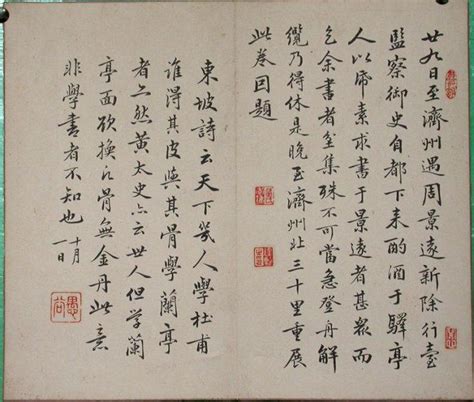 廿九日至濟州遇周景遠新除行臺
監察御史自都下来酌酒于驛亭
人以帋素求書于景遠者甚衆而
乞余書者坌集殊不可當急登舟解
纜乃得休是晚至濟州北三十里重展
此卷因題
東坡詩云天下幾人學杜甫
誰得其皮與其骨學蘭亭
者亦然黄太史亦云世人但學蘭
亭面欲換凡骨無金丹此意
非學書者不知也十月一日
愚谷